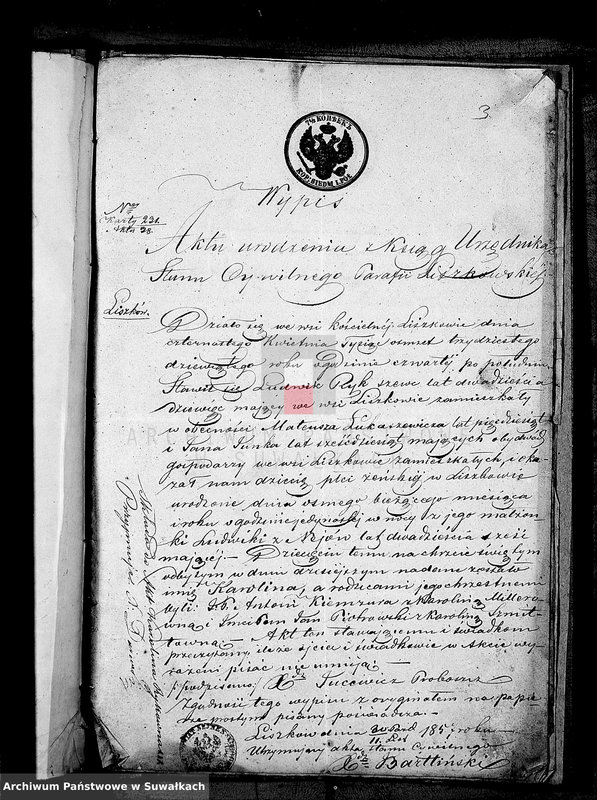 3
7½ КОПѢЕКЪ
KOP. SIEDM I PÓŁ
Wypis
Nro
Karty 231.
Aktu 38.
Aktu urodzenia z Xięg Urzędnika
Stanu Cywilnego Parafii Liszkowskiej
Liszków.
Działo się we wsi kościelnéj Liszkowie dnia
czternastego Kwietnia tysiąc ośmset trzydziestego
dziewiątego roku o godzinie czwartéj po południu
Stawił się Ludwik Ryk szewc lat dwadzieścia
dziewięć mający we wsi Liszkowie zamieszkały
w obecności Mateusza Łukaszewicza lat pięćdziesiąt
i Jana Sunka lat sześćdziesiąt mających obydwóch
gospodarzy we wsi Liszkowie zamieszkałych i oka-
zał nam dziecię płci żeńskiéj w Liszkowie
urodzone dnia osmego bieżącego miesiąca
i roku o godzinie jedynastej w nocy z jego małżon-
ki Ludwiki z lat dwadzieścia sześć
mającéj — Dziecięciu temu na chrzcie świętym
odbytym w dniu dzisiejszym nadane zostało
imię Karolina, a rodzicami jego chrzestnemi
byli: Antoni z Karoliną Millerow-
ną i Jan Piotrowski z Karoliną
— Akt ten stawającemu i świadkom
przeczytany, iż ojciec i świadkowie w Akcie wy-
rażeni pisać nie umieją. —
(podpisano) Xdz Jucewicz Proboszcz
Zgodność tego wypisu z oryginałem na papie-
rze prostym pisany poświadcza. —
Liszków dnia 185 roku —
Utrzymujący akta Stanu Cywilnego
Xdz Bartliński
ARCHIWUM
Archiwum Państwowe w Suwałkach